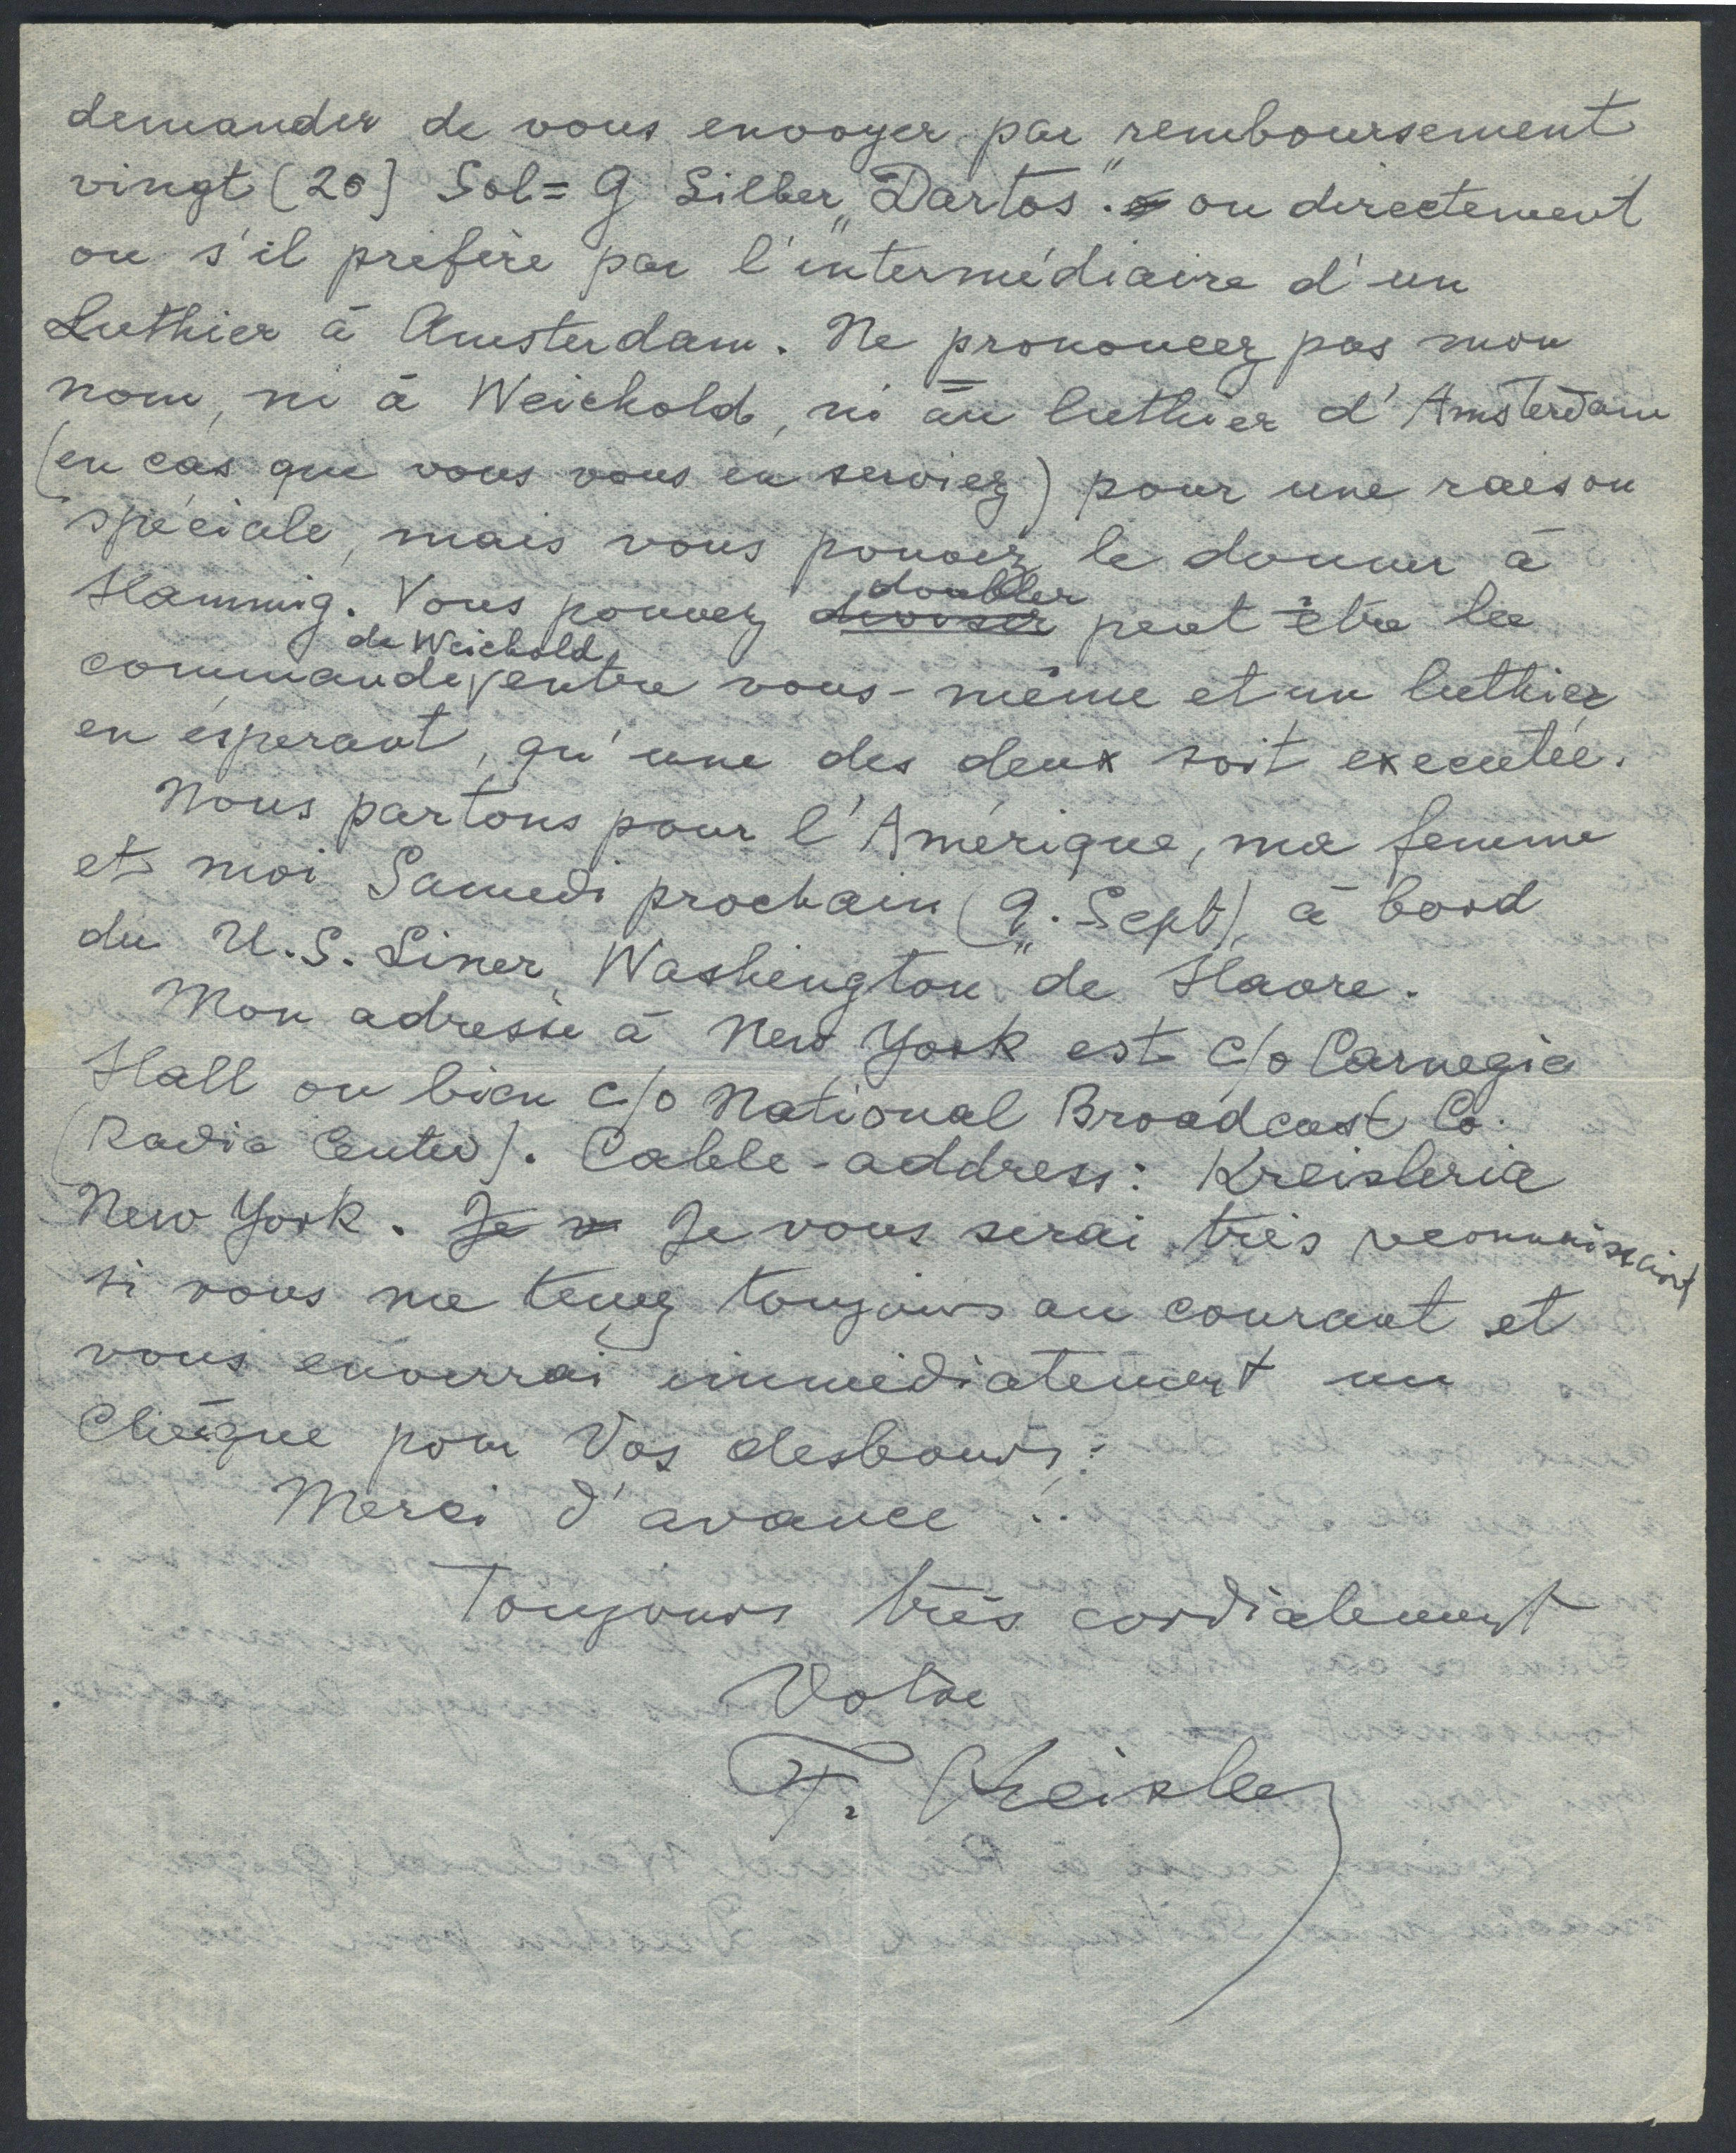 demander de vous envoyer par remboursement
vingt (20) Sol = G Silber „Dartos". ou directement
ou s'il préfère par l'intermédiaire d'un
Luthier à Amsterdam. Ne prononcez pas mon
nom, ni à Weichold, ni au luthier d'Amsterdam
(en cas que vous vous en serviez) pour une raison
spéciale, mais vous pouvez le donner à
Hammig. Vous pouvez diviser doubler peut être la
commande de Weichold entre vous-même et un luthier
en ésperant, qu'une des deux soit executée.
Nous partons pour l'Amérique, ma femme
et moi Samedi prochain (9. Sept), à bord
du U.S. Liner „Washington" de Havre.
Mon adresse à New York est c/o Carnegie
Hall ou bien c/o National Broadcast Co.
(Radio Center). Cable-address: Kreisleria
New York. Je v Je vous serai très reconnaissant
si vous me tenez toujours au courant et
vous enverrai immédiatement un
Chèque pour Vos desbours.
Merci d'avance!
Toujours très cordialement
Votre
F. Kreisler